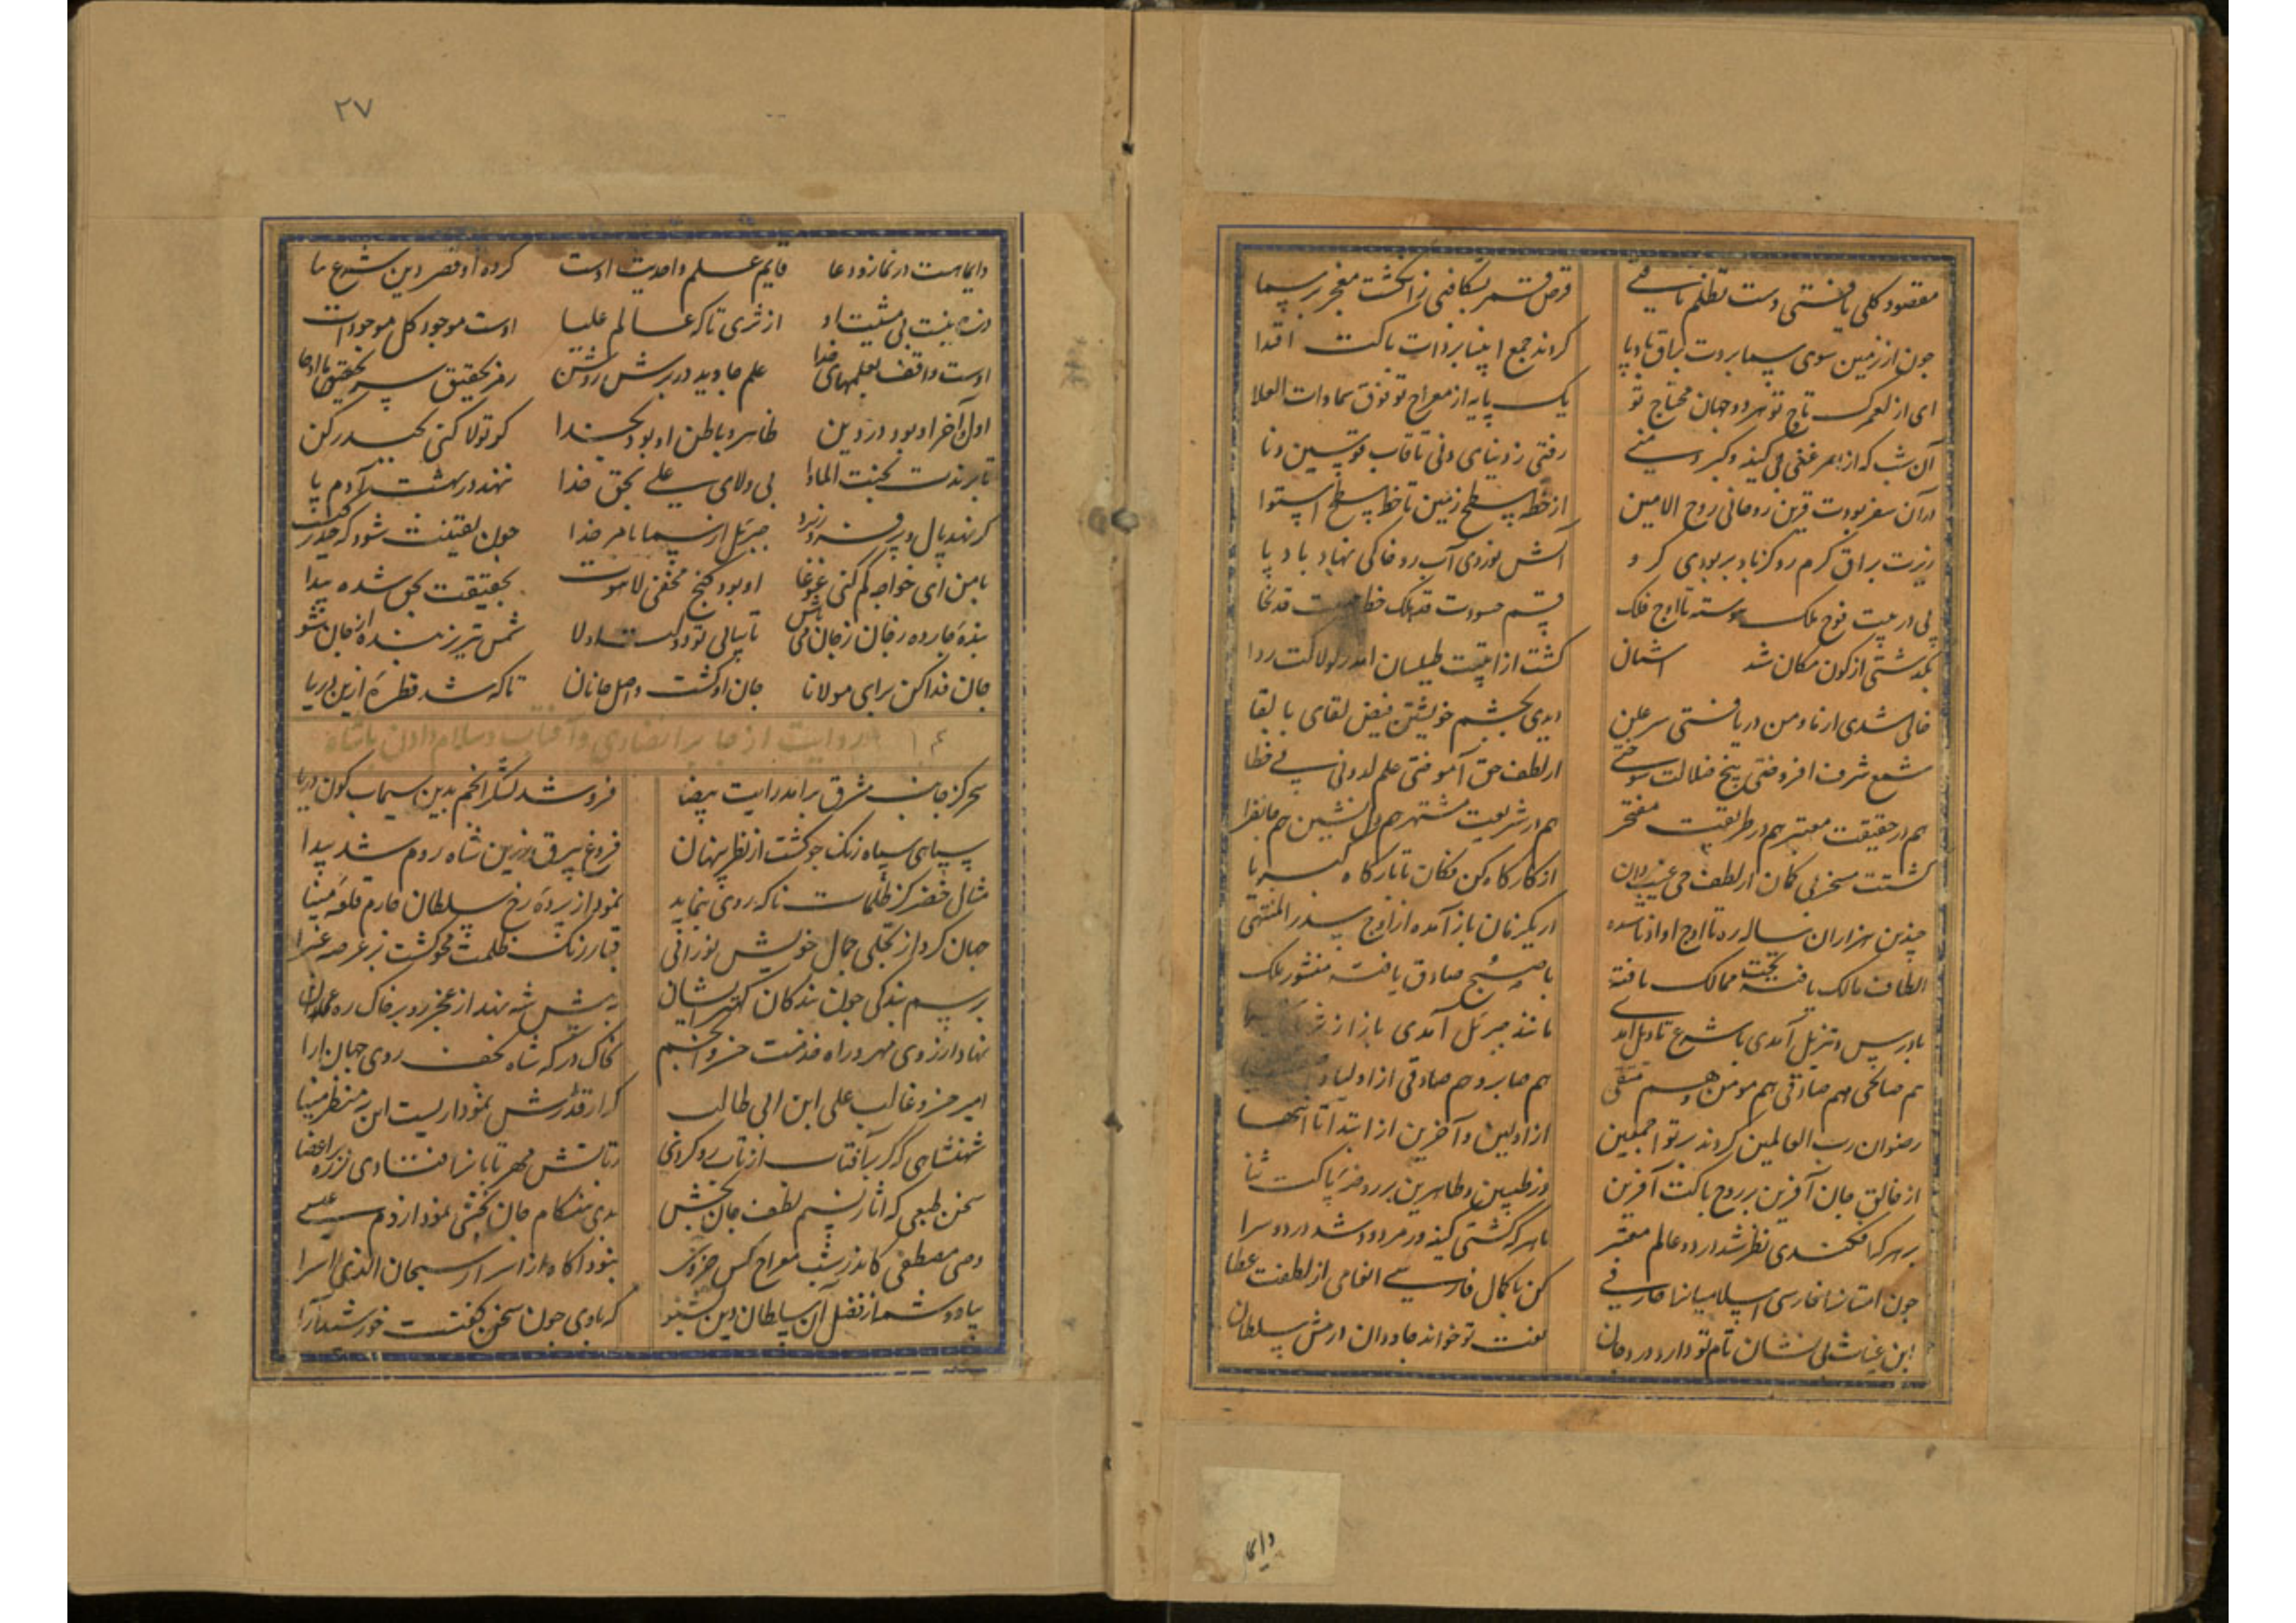 مقصود کلی یافتی دست تظلم تافتی قرص قمر بشکافتی ز انگشت معجز بر سما
چون از زمین سوی سما بردت براق بادپا کردند جمع انبیا بر ذات پاکت اقتدا
ای از لعمرک تاج تو هر دو جهان محتاج تو یک پایه از معراج تو فوق سماوات العلا
آن شب که از بهر غنی بی کینه و کبر و منی رفتی ز دنیای دنی تا قاب قوسین دنا
در آن سفر بودت قرین روحانی روح الامین از خط سطح زمین تا خط سطح استوا
زیرت براق گرم رو کز باد بربودی گرو آتش نوردی آب رو خاکی نهاد باد پا
پی در پیت فوج ملک پیوسته تا اوج فلک قسم حسودت قد هلک قد نجا
بگذشتی از کون مکان شد گشت از طیلسان لولاکت ردا
خالی شدی از ما و من دریافتی سر علن دیدی بچشم خویشتن فیض لقای با بقا
شمع شرف افروختی بیخ ضلالت سوختی از لطف حق آموختی علم لدونی بی خطا
هم در حقیقت معتبر هم در طریقت مفتخر هم در شریعت مشتهر هم دل نشین هم جانفزا
گشتت مسخر بی گمان از لطف حی غیب دان از کارگاه کن فکان تا بارگاه کبریا
چندین هزاران ساله ره تا اوج در یکزمان باز آمده از اوج سدر المنتهی
الطاف مالک یافته تخت ممالک یافته با صبح صادق یافته منشور ملک
با درس و تنزیل آمدی با شرع تاویل آمدی مانند جبرئیل آمدی باز از
هم صالحی هم صادقی هم مومن و هم متقی هم صابر و هم صادقی از اولیا و
رضوان رب العالمین کردند بر تو اجمعین از اولین و آخرین از ابتدا تا انتها
از خالق جان آفرین بر روح پاکت آفرین وز طیبین و طاهرین بر روضهٔ پاکت ثنا
بر هر که افکندی نظر شد در دو عالم معتبر با هر که گشتی کینه ور مردود شد در دو سرا
چون کن با کمال فارسی انعامی از لطفت عطا
این بی نشان نام تو دارد ورد جان نعت تو خواند جاودان در مش سلطان
دایما
۲۷
دایماست در نماز و دعا قایم علم واحدیت اوست کرده او قصر دین شرع بنا
ذره نیست بی مشیت او از ثری تا که عالم علیا اوست موجود کل موجودات
اوست واقف بعلمهای خدا علم جاوید در برش روشن رمز تحقیق سر تحقیق ما اوحا
اول و آخر او بود در دین ظاهر و باطن او بود بخدا گر تولا کنی بحیدر کن
تا برندت بجنت الماوا بی ولای علی بحق خدا ننهد در بهشت آدم پا
گر نهد بال و پر فرو ریزد جبرئیل از سما بامر خدا چون یقینت شود که حیدر کیست
با من ای خواجه کم کنی غوغا او بود گنج مخفی لاهوت بحقیقت بحق شده پیدا
بندهٔ جارده رجان ز جان می باش تا بیابی تو دولت او لا شمس تبریز بنده از جان شو
جان فدا کن برای مولانا جان او گشت واصل جانان تا که شد قطرهٔ ازین دریا
روایت از جابر انصاری و آفتاب و سلام دادن با شاه
سحر کز جانب مشرق برآمد رایت بیضا فرو شد لشکر انجم بدین سیماب گون دریا
سپاهی سیاه زنگ چو گشت از نظر پنهان فروغ بیرق زرین شاه روم شد پیدا
مثال خضر کز ظلمات ناگه روی بنماید نمود از پرده رخ سلطان چارم قلعهٔ مینا
جهان کرد از تجلی جمال خویش نورانی غبار زنگ ظلمت محو گشت از عرصهٔ غبرا
برسم بندگی چون بندگان کمترین شه نهد از عجز رو بر خاک ره
نهاد از روی مهر در راه خدمت خسرو انجم بخاک درگه شاه نجف روی جهان آرا
امیر حیدر غالب علی ابن ابی طالب که از قدرش نموداریست این نه منظر مینا
شهنشاهی که گر بآفتاب از تاب رو کردی ز تابش مهر تابان را فتادی لرزه بر اعضا
سخن طبعی که آثار نسیم لطف جان بخشش بدی هنگام جان بخشی نمودار از دم عیسی
وصی مصطفی کاندر شب معراج کس جز وی نبود آگاه از اسرار سبحان الذی اسرا
بیا و شمهٔ از فضل آن سلطان دین بشنو که با وی چون سخن گفتت خورشید آرا